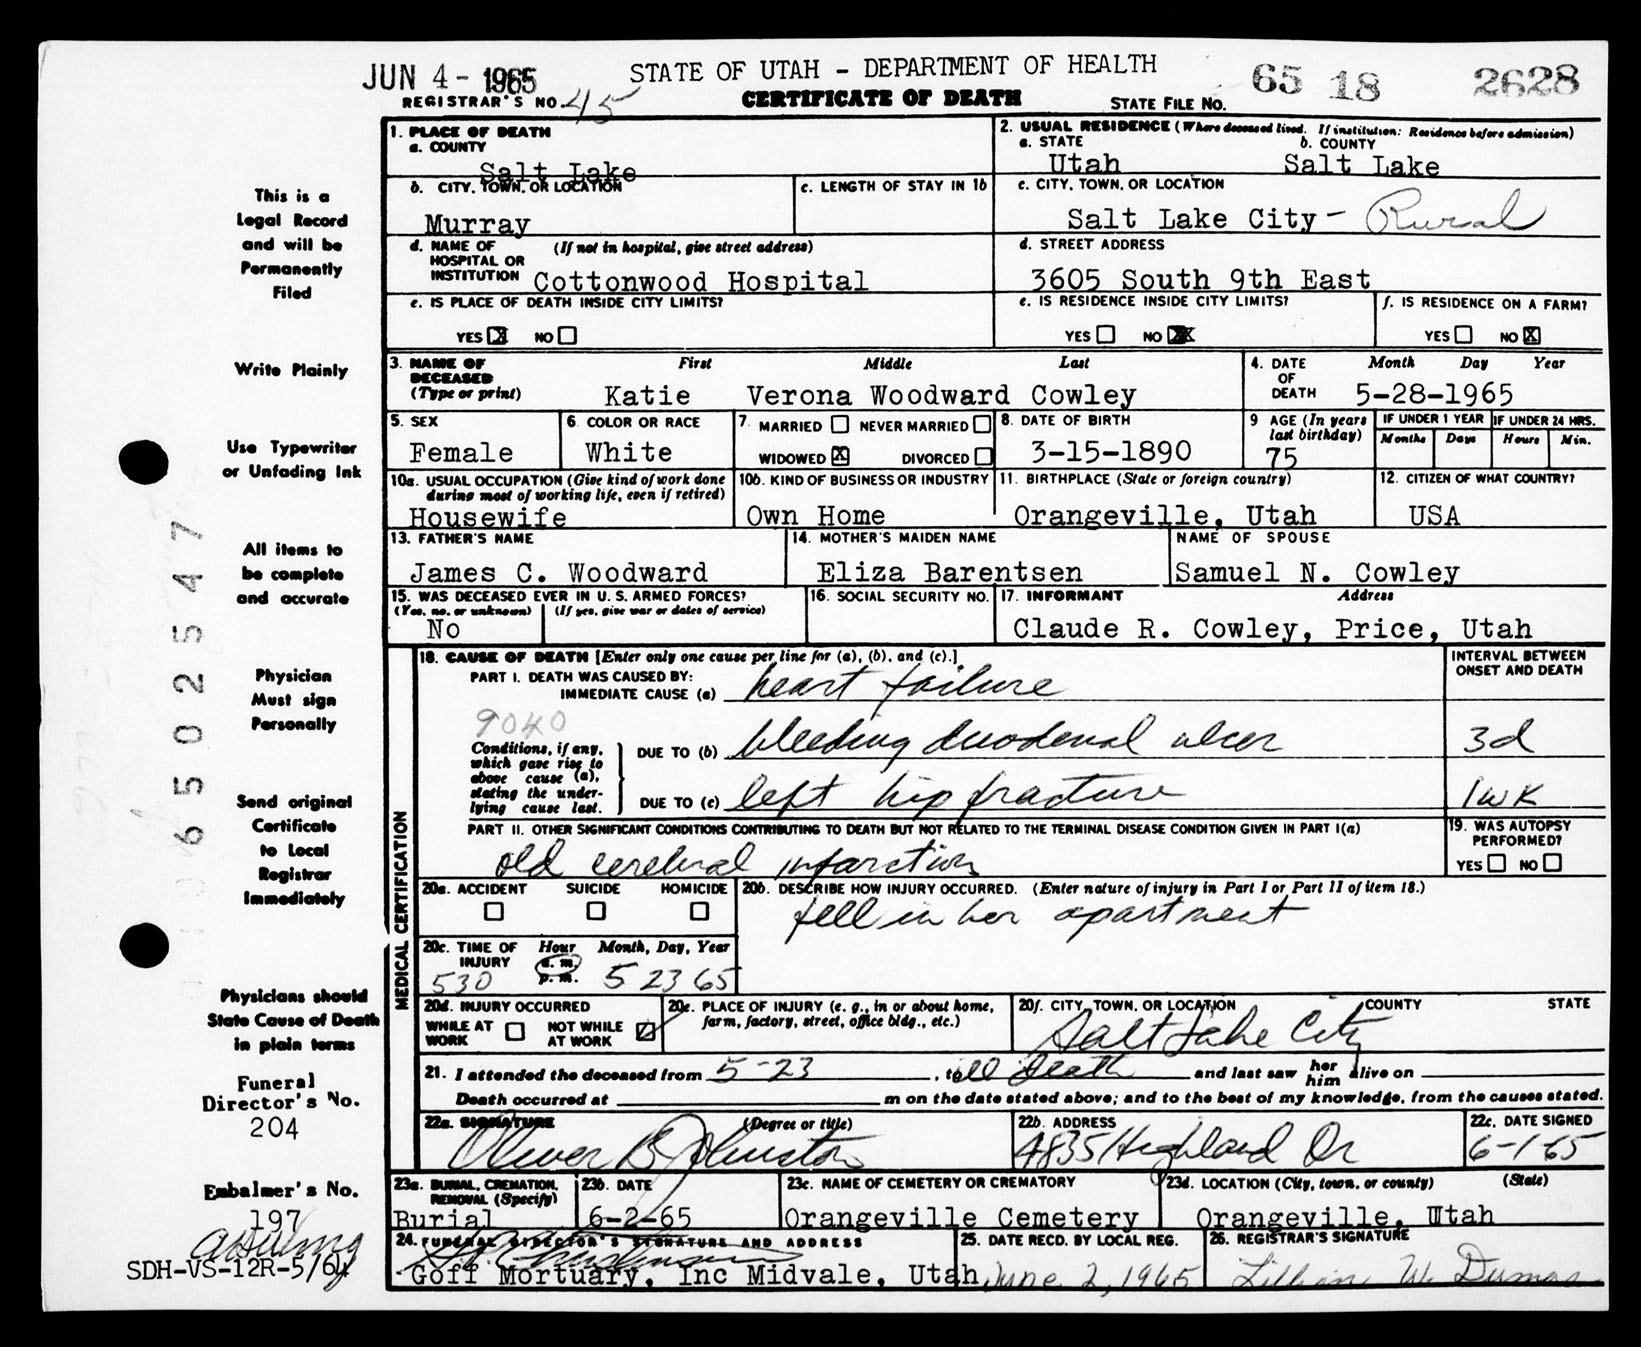 JUN 4 - 1965
STATE OF UTAH - DEPARTMENT OF HEALTH
65 18 2628
REGISTRAR'S NO. 45
CERTIFICATE OF DEATH
STATE FILE NO.
1. PLACE OF DEATH
a. COUNTY
Salt Lake
2. USUAL RESIDENCE (Where deceased lived. If institution: Residence before admission)
a. STATE b. COUNTY
Utah Salt Lake
b. CITY, TOWN, OR LOCATION
Murray
c. LENGTH OF STAY IN 1b
c. CITY, TOWN, OR LOCATION
Salt Lake City - Rural
d. NAME OF HOSPITAL OR INSTITUTION (If not in hospital, give street address)
Cottonwood Hospital
d. STREET ADDRESS
3605 South 9th East
e. IS PLACE OF DEATH INSIDE CITY LIMITS?
YES X NO
e. IS RESIDENCE INSIDE CITY LIMITS?
YES NO X
f. IS RESIDENCE ON A FARM?
YES NO X
3. NAME OF DECEASED (Type or print)
First Middle Last
Katie Verona Woodward Cowley
4. DATE OF DEATH Month Day Year
5-28-1965
5. SEX
Female
6. COLOR OR RACE
White
7. MARRIED NEVER MARRIED
WIDOWED X DIVORCED
8. DATE OF BIRTH
3-15-1890
9 AGE (In years last birthday)
75
IF UNDER 1 YEAR IF UNDER 24 HRS.
Months Days Hours Min.
10a. USUAL OCCUPATION (Give kind of work done during most of working life, even if retired)
Housewife
10b. KIND OF BUSINESS OR INDUSTRY
Own Home
11. BIRTHPLACE (State or foreign country)
Orangeville, Utah
12. CITIZEN OF WHAT COUNTRY?
USA
13. FATHER'S NAME
James C. Woodward
14. MOTHER'S MAIDEN NAME
Eliza Barentsen
NAME OF SPOUSE
Samuel N. Cowley
15. WAS DECEASED EVER IN U. S. ARMED FORCES?
(Yes, no, or unknown) (If yes, give war or dates of service)
No
16. SOCIAL SECURITY NO.
17. INFORMANT Address
Claude R. Cowley, Price, Utah
MEDICAL CERTIFICATION
18. CAUSE OF DEATH [Enter only one cause per line for (a), (b), and (c).]
INTERVAL BETWEEN ONSET AND DEATH
PART I. DEATH WAS CAUSED BY:
IMMEDIATE CAUSE (a) heart failure
9040
Conditions, if any, which gave rise to above cause (a), stating the underlying cause last.
DUE TO (b) bleeding duodenal ulcer 3d
DUE TO (c) left hip fracture 1wk
PART II. OTHER SIGNIFICANT CONDITIONS CONTRIBUTING TO DEATH BUT NOT RELATED TO THE TERMINAL DISEASE CONDITION GIVEN IN PART I(a)
old cerebral infarction
19. WAS AUTOPSY PERFORMED?
YES NO
20a. ACCIDENT SUICIDE HOMICIDE
20b. DESCRIBE HOW INJURY OCCURRED. (Enter nature of injury in Part I or Part II of item 18.)
fell in her apartment
20c. TIME OF INJURY Hour Month, Day, Year
530 a. m. p. m. 5 23 65
20d. INJURY OCCURRED
WHILE AT WORK NOT WHILE AT WORK
20e. PLACE OF INJURY (e. g., in or about home, farm, factory, street, office bldg., etc.)
20f. CITY, TOWN, OR LOCATION COUNTY STATE
Salt Lake City
21. I attended the deceased from 5-23, to till death and last saw her him alive on
Death occurred at m on the date stated above; and to the best of my knowledge, from the causes stated.
22a. SIGNATURE (Degree or title)
Oliver B Johnston
22b. ADDRESS
4835 Highland Dr
22c. DATE SIGNED
6-1-65
23a. BURIAL, CREMATION, REMOVAL (Specify)
Burial
23b. DATE
6-2-65
23c. NAME OF CEMETERY OR CREMATORY
Orangeville Cemetery
23d. LOCATION (City, town, or county) (State)
Orangeville, Utah
24. FUNERAL DIRECTOR'S SIGNATURE AND ADDRESS
Goff Mortuary, Inc Midvale, Utah
25. DATE RECD. BY LOCAL REG.
June 2, 1965
26. REGISTRAR'S SIGNATURE
Lillian W. Dumas
This is a
Legal Record
and will be
Permanently
Filed
Write Plainly
Use Typewriter
or Unfading Ink
All items to
be complete
and accurate
Physician
Must sign
Personally
Send original
Certificate
to Local
Registrar
Immediately
Physicians should
State Cause of Death
in plain terms
Funeral
Director's No.
204
Embalmer's No.
197
SDH-VS-12R-5/64
6502547